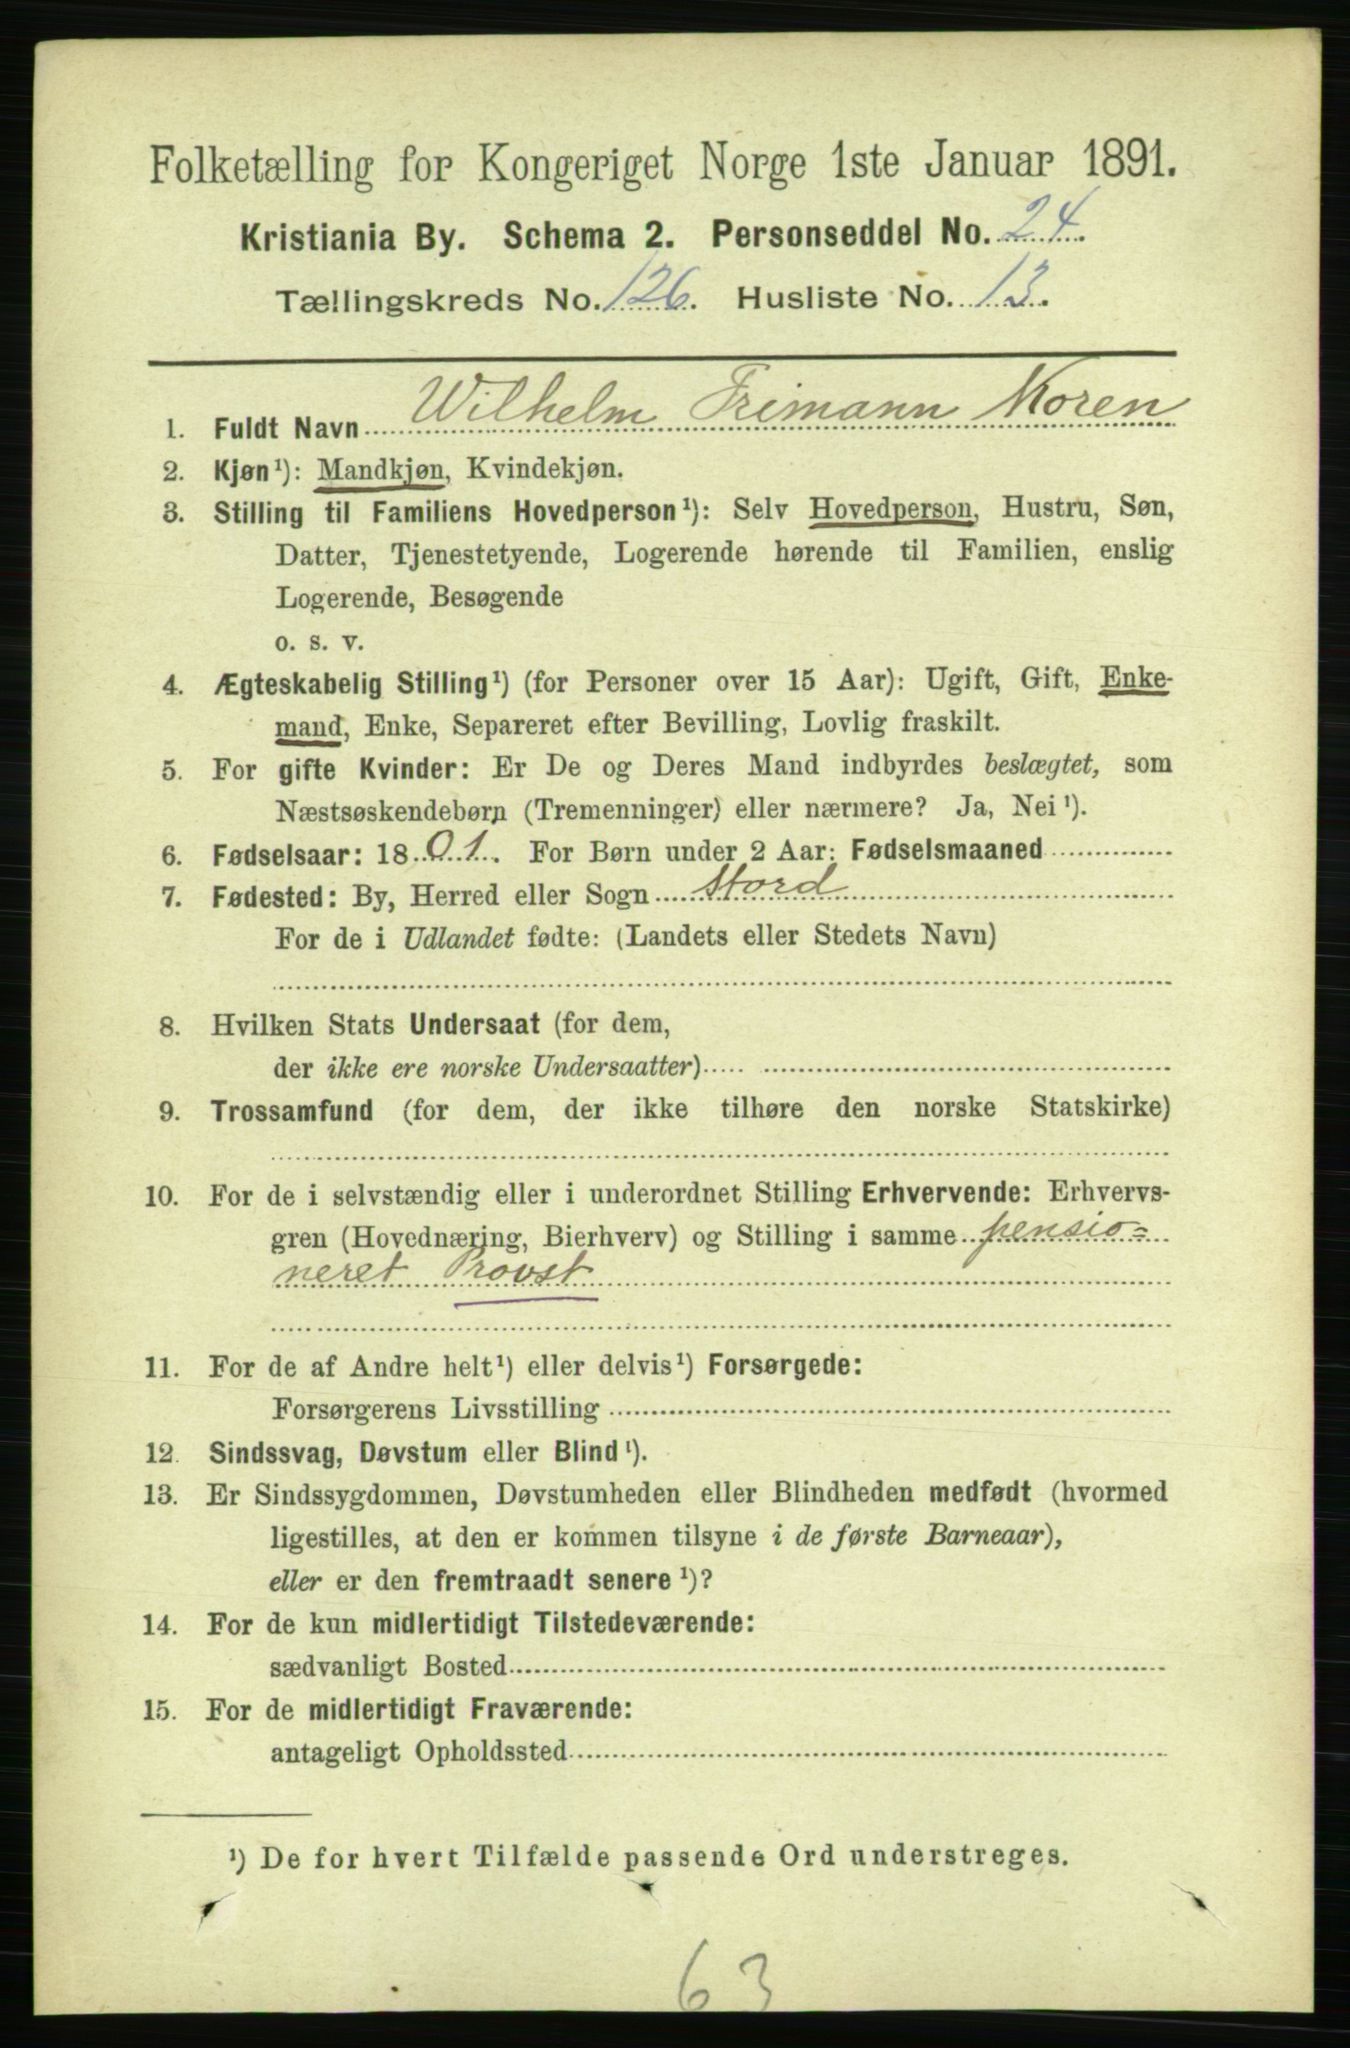 Folketælling for Kongeriget Norge 1ste Januar 1891.
Kristiania By. Schema 2. Personseddel No. 24.
Tællingskreds No. 126. Husliste No. 13.
1. Fuldt Navn Wilhelm Frimann Koren
2. Kjøn¹): Mandkjøn, Kvindekjøn.
3. Stilling til Familiens Hovedperson¹): Selv Hovedperson, Hustru, Søn,
Datter, Tjenestetyende, Logerende hørende til Familien, enslig
Logerende, Besøgende
o. s. v.
4. Ægteskabelig Stilling¹) (for Personer over 15 Aar): Ugift, Gift, Enke-
mand, Enke, Separeret efter Bevilling, Lovlig fraskilt.
5. For gifte Kvinder: Er De og Deres Mand indbyrdes beslægtet, som
Næstsøskendebørn (Tremenninger) eller nærmere? Ja, Nei¹).
6. Fødselsaar: 1801. For Børn under 2 Aar: Fødselsmaaned
7. Fødested: By, Herred eller Sogn Stord
For de i Udlandet fødte: (Landets eller Stedets Navn)
8. Hvilken Stats Undersaat (for dem,
der ikke ere norske Undersaatter)
9. Trossamfund (for dem, der ikke tilhøre den norske Statskirke)
10. For de i selvstændig eller i underordnet Stilling Erhvervende: Erhvervs-
gren (Hovednæring, Bierhverv) og Stilling i samme pensio=
neret Provst
11. For de af Andre helt¹) eller delvis¹) Forsørgede:
Forsørgerens Livsstilling
12. Sindssvag, Døvstum eller Blind¹).
13. Er Sindssygdommen, Døvstumheden eller Blindheden medfødt (hvormed
ligestilles, at den er kommen tilsyne i de første Barneaar),
eller er den fremtraadt senere¹)?
14. For de kun midlertidigt Tilstedeværende:
sædvanligt Bosted
15. For de midlertidigt Fraværende:
antageligt Opholdssted
¹) De for hvert Tilfælde passende Ord understreges.
63